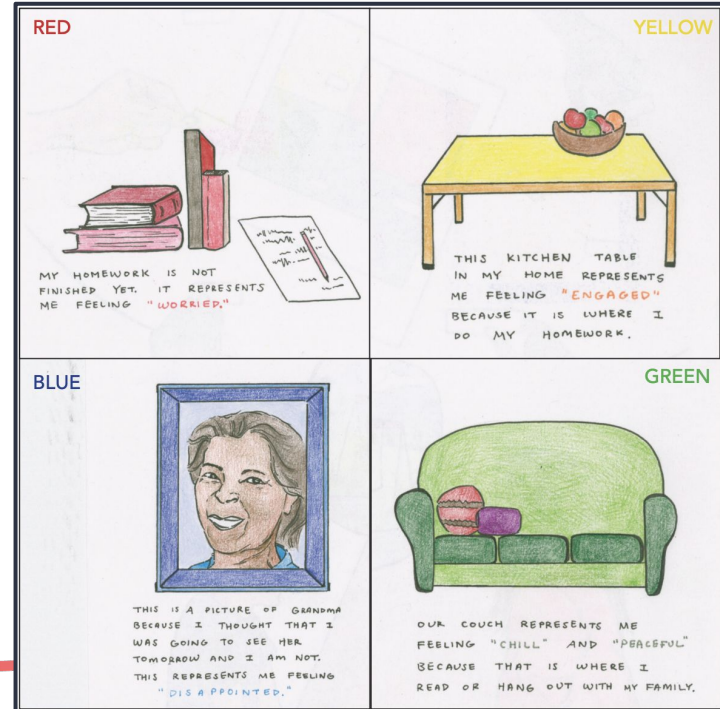 RED
MY HOMEWORK IS NOT
FINISHED YET. IT REPRESENTS
ME FEELING "WORRIED."
YELLOW
THIS KITCHEN TABLE
IN MY HOME REPRESENTS
ME FEELING "ENGAGED"
BECAUSE IT IS WHERE I
DO MY HOMEWORK.
BLUE
THIS IS A PICTURE OF GRANDMA
BECAUSE I THOUGHT THAT I
WAS GOING TO SEE HER
TOMORROW AND I AM NOT.
THIS REPRESENTS ME FEELING
"DISAPPOINTED."
GREEN
OUR COUCH REPRESENTS ME
FEELING "CHILL" AND "PEACEFUL"
BECAUSE THAT IS WHERE I
READ OR HANG OUT WITH MY FAMILY.